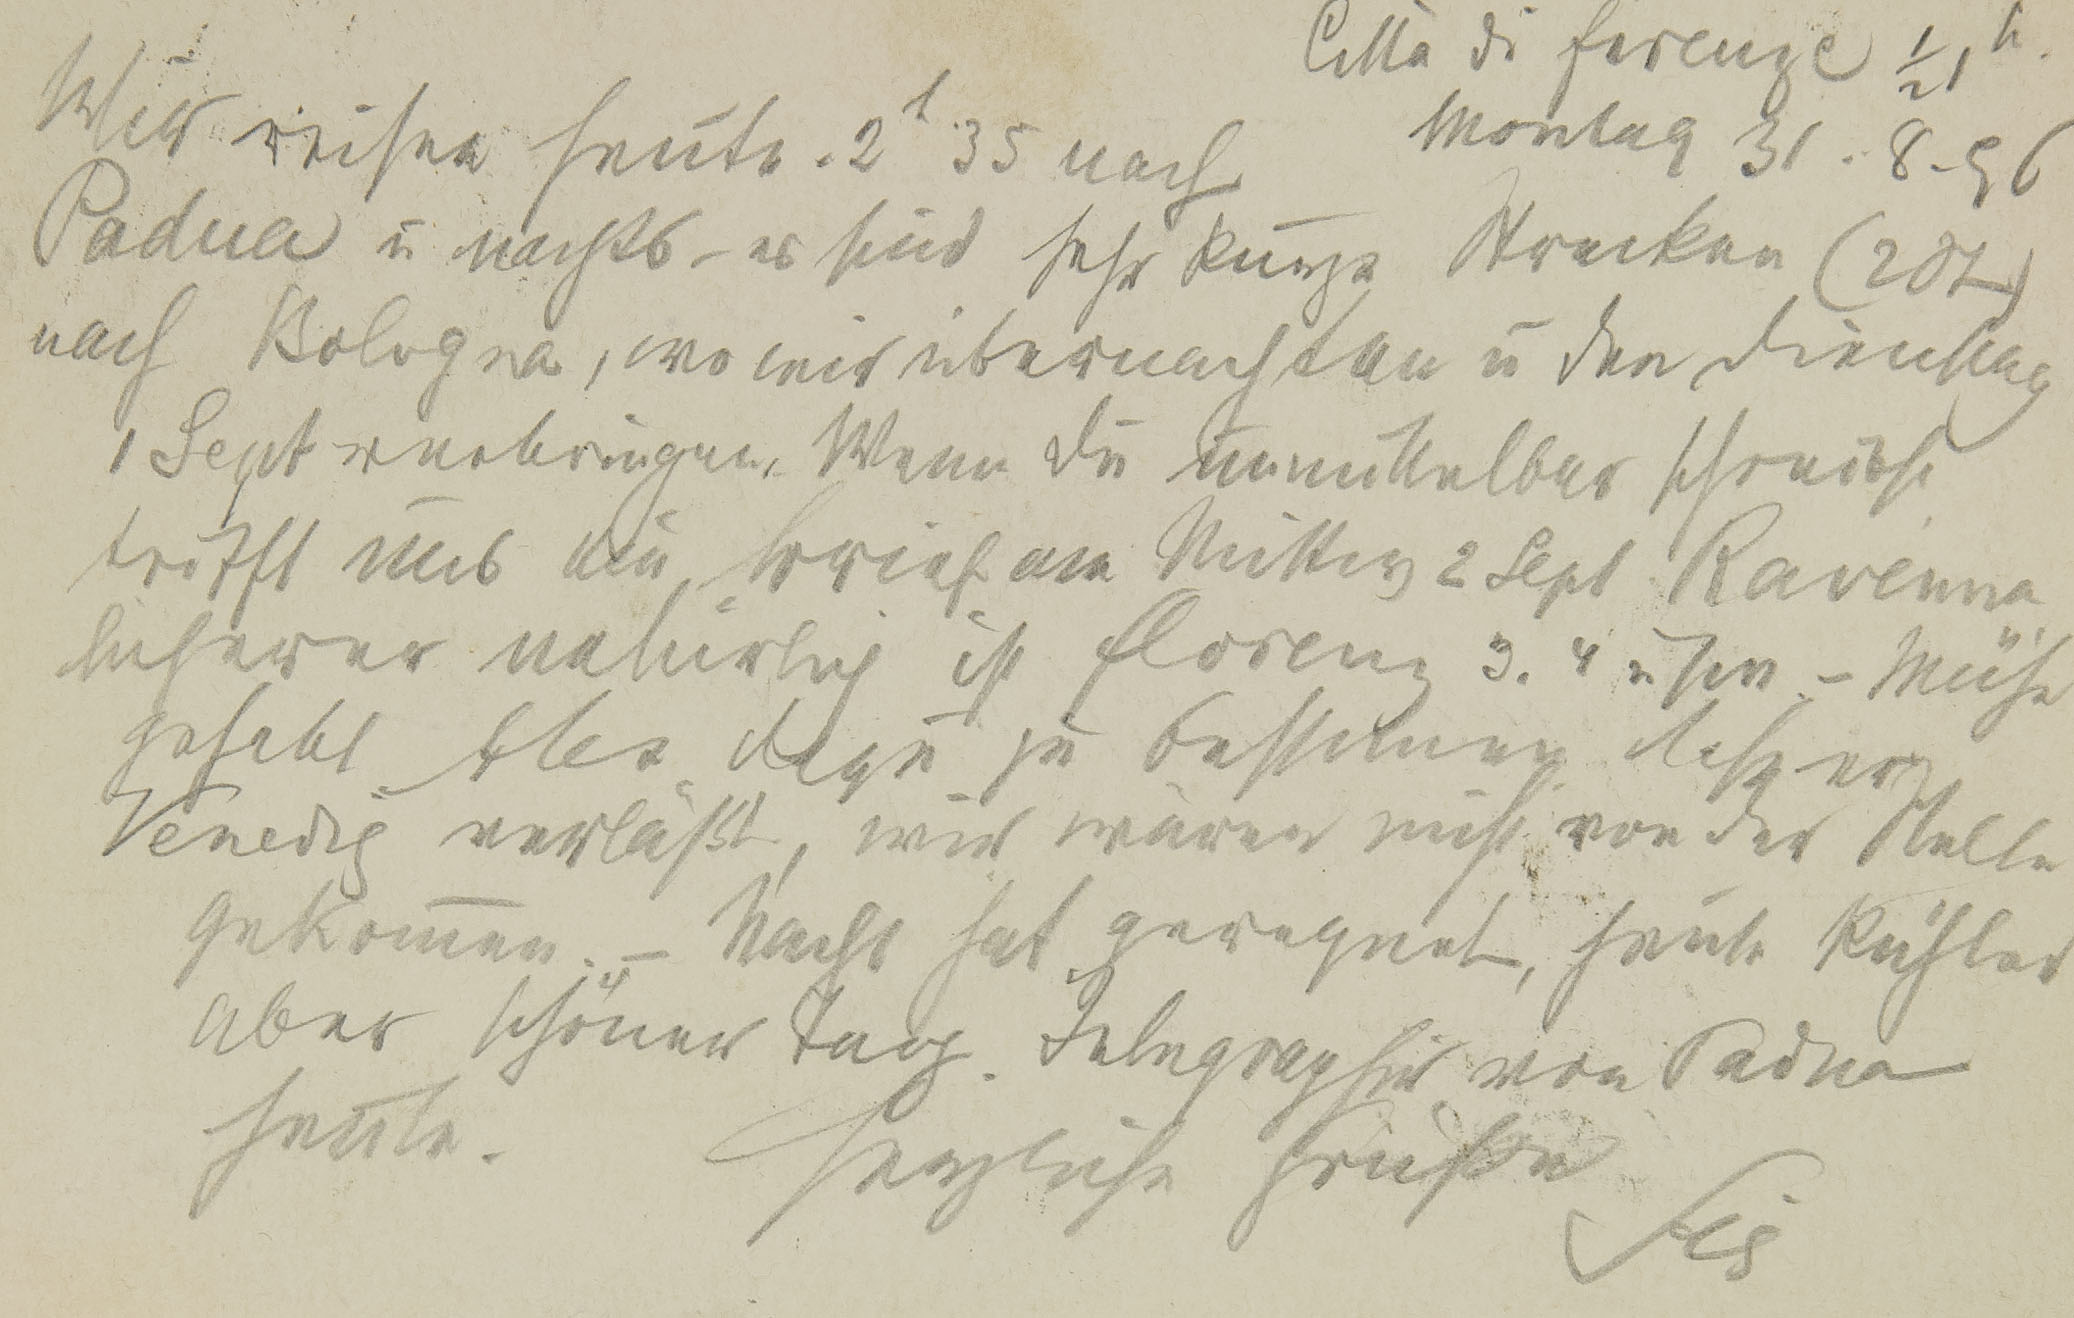 Città di firenze ½1 h.
Montag 31. 8. 96
Wir reisen heute 2h 35 nach
Padua u nachts – es sind sehr kurze Strecken (20 L)
nach Bologna, wo wir übernachten u den Dienstag
1 Sept verbringen. Wenn Du unmittelbar schreibst
trifft uns ein Brief am Mittw 2 Sept Ravenna
sicherer natürlich ist Florenz 3. 4 u ffn. – Mühe
gehabt Alex dazu zu bestimmen daß er
Venedig verläßt, wir wären nicht von der Stelle
gekom̅en. – Nachts hat geregnet, heute kühler
aber schöner Tag. Telegraphir von Padua
heute. herzliche Grüße
Sig